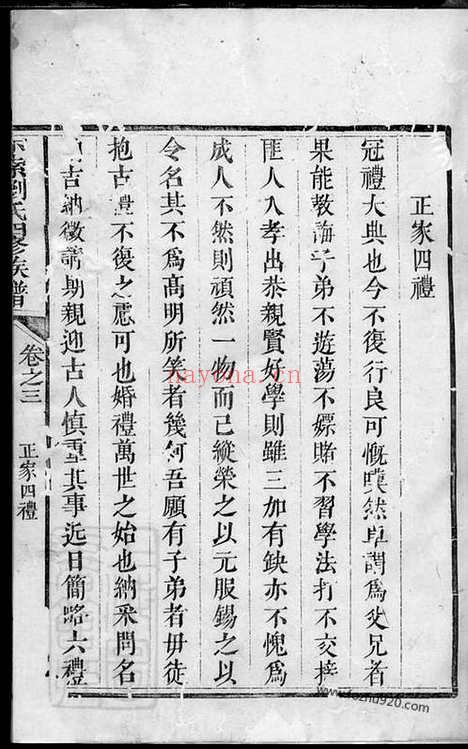 正家四禮
冠禮大典也今不復行良可慨嘆然卓謂爲父兄者
果能教誨子弟不遊蕩不嫖賭不習學法打不交接
匪人入孝出恭親賢好學則雖三加有缺亦不愧爲
成人不然則頑然一物而已縱榮之以元服錫之以
令名其不爲高明所笑者幾何吾願有子弟者毋徒
抱古禮不復之慮可也婚禮萬世之始也納采問名
吉納徵請期親迎古人慎重其事近日簡略六禮
劉氏四修族譜
卷之三
正家四禮
nayona.cn
www.fozhu920.com